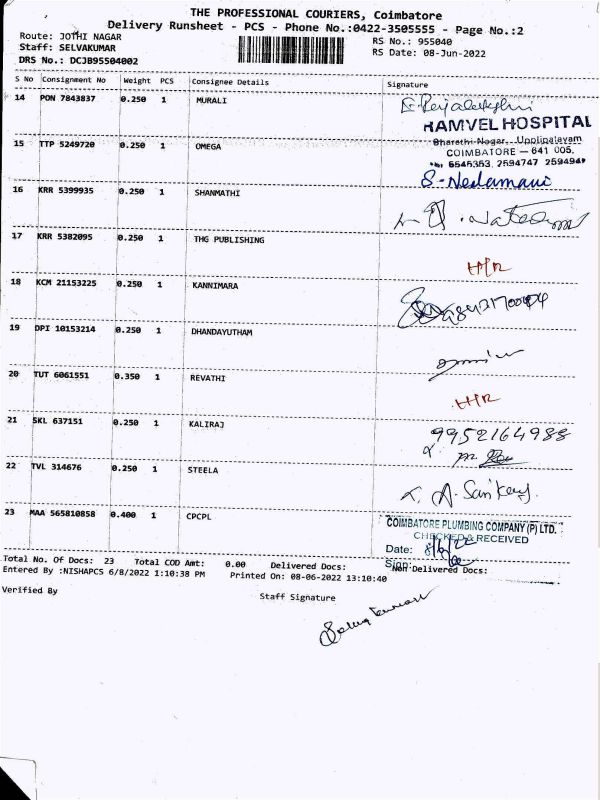 THE PROFESSIONAL COURIERS, Coimbatore
Delivery Runsheet - PCS - Phone No.:0422-3505555 - Page No.:2
Route: JOTHI NAGAR
RS No.: 955040
Staff: SELVAKUMAR
RS Date: 08-Jun-2022
DRS No.: DCJB95504002
S No Consignment No Weight PCS Consignee Details Signature
14 PON 7843837 0.250 1 MURALI
RAMVEL HOSPITAL
Bharathi Nagar, Upplipalayam
15 TTP 5249720 0.250 1 OMEGA
COIMBATORE - 641 005.
6545353, 2594747 2594949
16 KRR 5399935 0.250 1 SHANMATHI
S-Nedamani
17 KRR 5382095 0.250 1 THG PUBLISHING
18 KCM 21153225 0.250 1 KANNIMARA
19 DPI 10153214 0.250 1 DHANDAYUTHAM
20 TUT 6061551 0.350 1 REVATHI
21 SKL 637151 0.250 1 KALIRAJ
9952164988
22 TVL 314676 0.250 1 STEELA
23 MAA 565810858 0.400 1 CPCPL
COIMBATORE PLUMBING COMPANY (P) LTD.
CHECKED & RECEIVED
Date: 8/6/22
Sign:
Total No. Of Docs: 23 Total COD Amt: 0.00 Delivered Docs: Non Delivered Docs:
Entered By :NISHAPCS 6/8/2022 1:10:38 PM Printed On: 08-06-2022 13:10:40
Verified By
Staff Signature